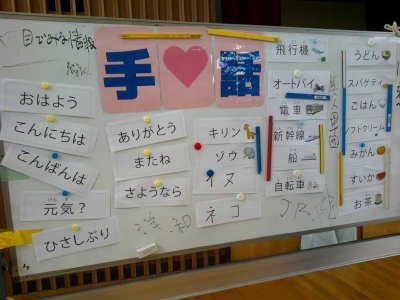 目でみる情報
手♥話
おはよう
こんにちは
こんばんは
元気？
ひさしぶり
ありがとう
またね
さようなら
キリン
ゾウ
イヌ
ネコ
飛行機
オートバイ
電車
新幹線
船
自転車
うどん
スパゲティ
ごはん
ソフトクリーム
みかん
すいか
お茶